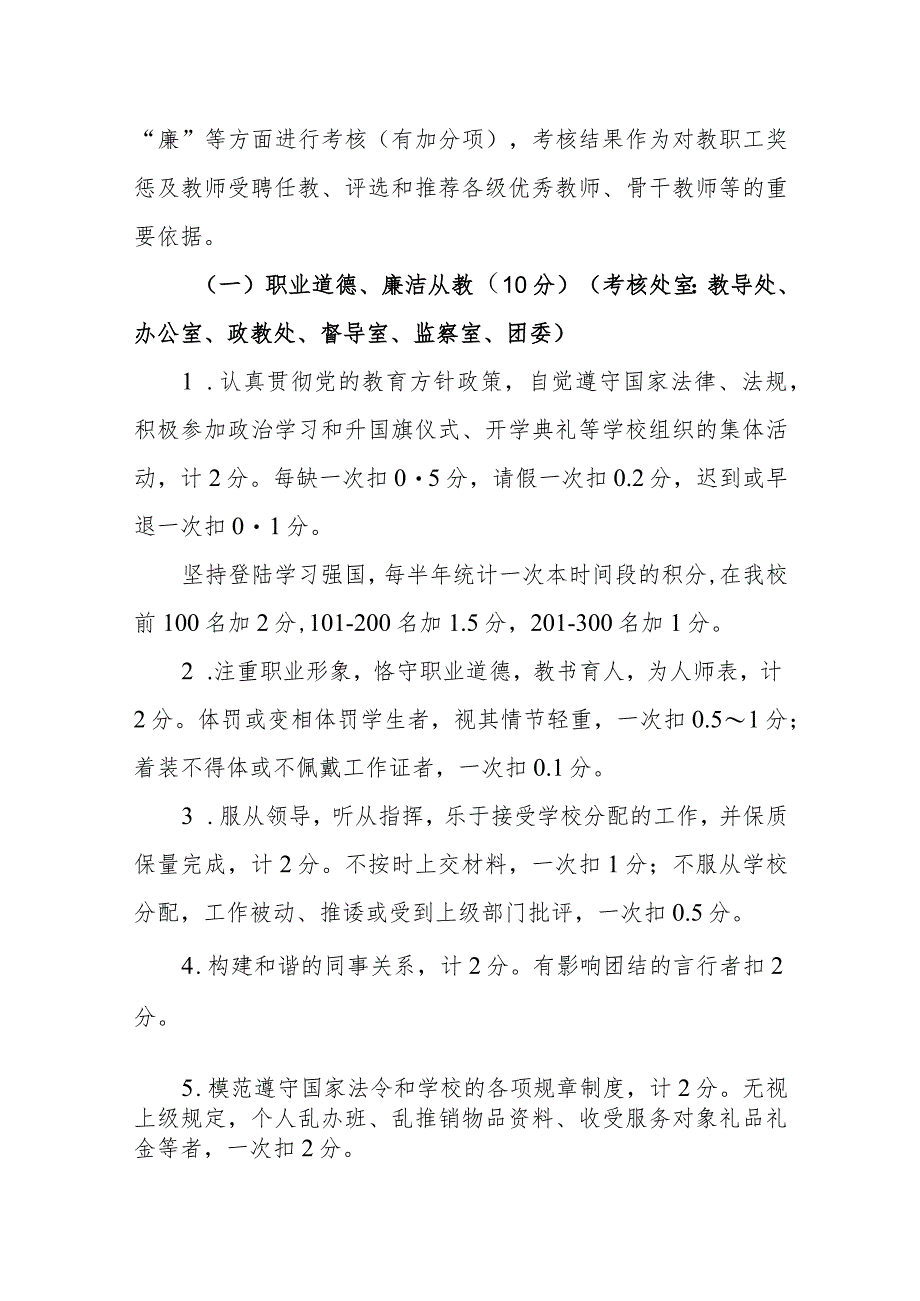 “廉”等方面进行考核（有加分项），考核结果作为对教职工奖
惩及教师受聘任教、评选和推荐各级优秀教师、骨干教师等的重
要依据。
（一）职业道德、廉洁从教（10分）（考核处室：教导处、
办公室、政教处、督导室、监察室、团委）
1 .认真贯彻党的教育方针政策，自觉遵守国家法律、法规，
积极参加政治学习和升国旗仪式、开学典礼等学校组织的集体活
动，计2分。每缺一次扣0・5分，请假一次扣0.2分，迟到或早
退一次扣0・1分。
坚持登陆学习强国，每半年统计一次本时间段的积分,在我校
前100名加2分,101-200名加1.5分，201-300名加1分。
2 .注重职业形象，恪守职业道德，教书育人，为人师表，计
2分。体罚或变相体罚学生者，视其情节轻重，一次扣0.5～1分；
着装不得体或不佩戴工作证者，一次扣0.1分。
3 .服从领导，听从指挥，乐于接受学校分配的工作，并保质
保量完成，计2分。不按时上交材料，一次扣1分；不服从学校
分配，工作被动、推诿或受到上级部门批评，一次扣0.5分。
4.构建和谐的同事关系，计2分。有影响团结的言行者扣2
分。
5.模范遵守国家法令和学校的各项规章制度，计2分。无视
上级规定，个人乱办班、乱推销物品资料、收受服务对象礼品礼
金等者，一次扣2分。